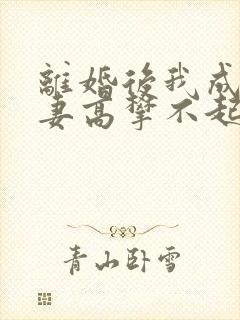 離婚後我成
妻高攀不起
青山卧雪